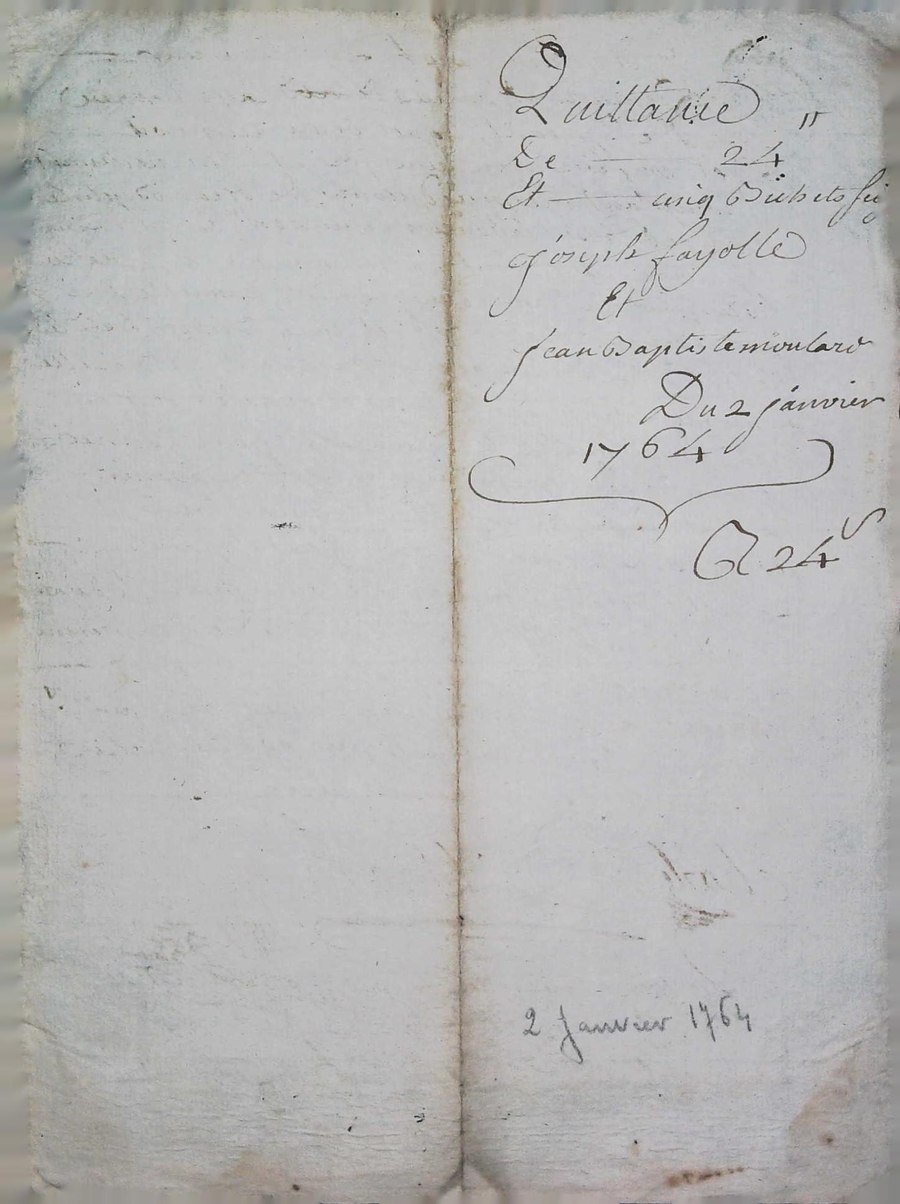 Quittance
De — 24 ״
Et — cinq Bichets
joseph fayolle
Et
jean Baptiste moulard
Du 2 janvier
1764
24
2 Janvier 1764